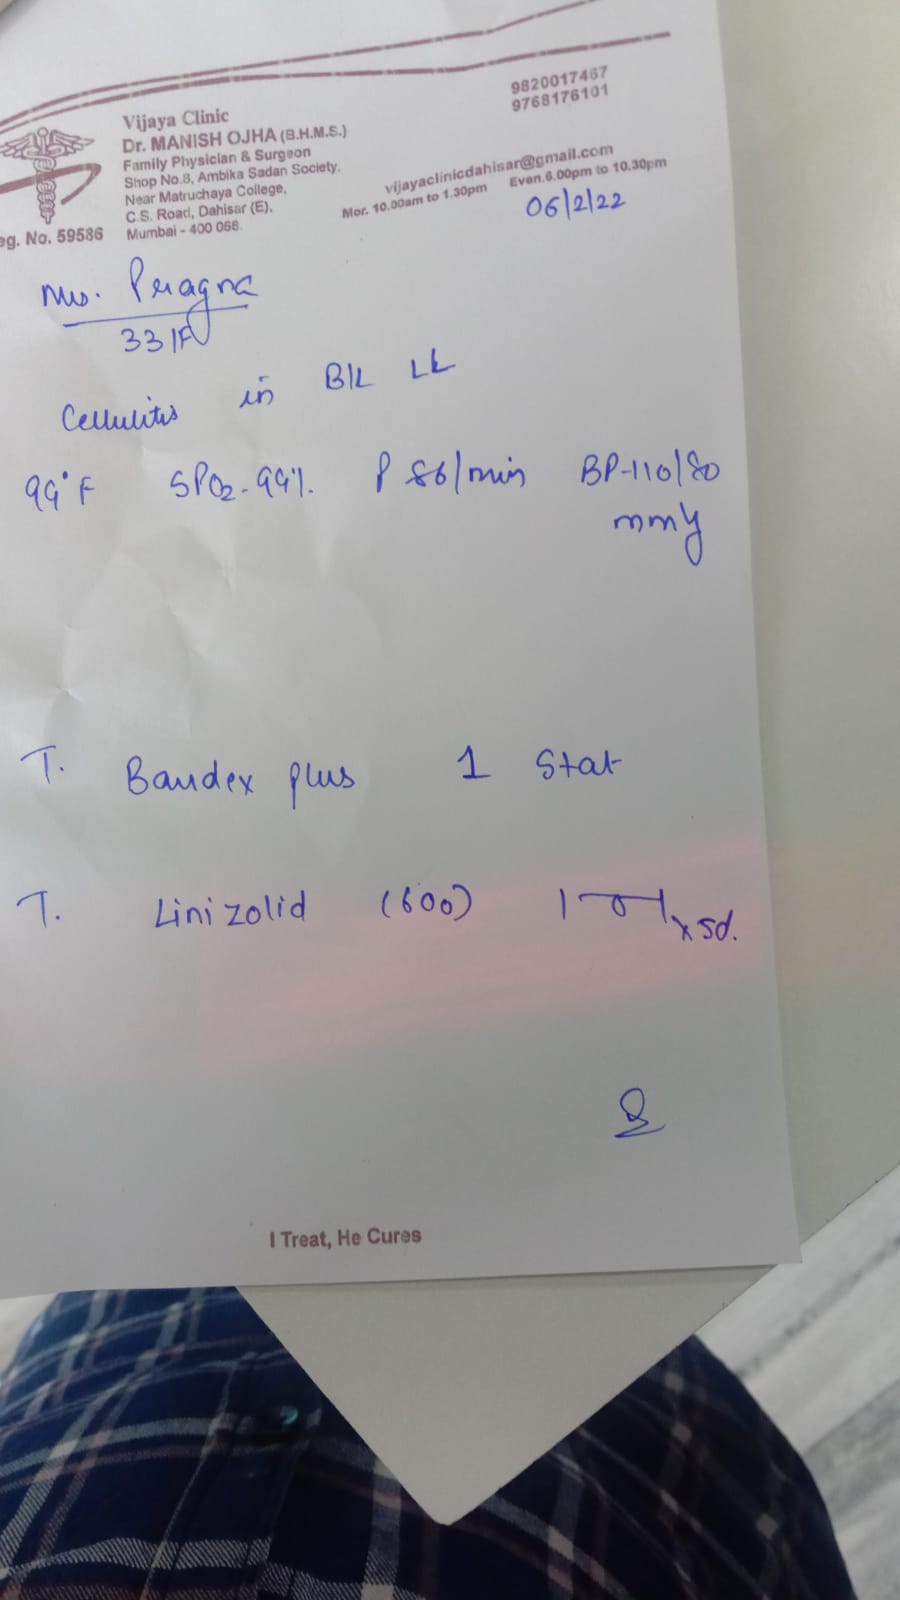 Vijaya Clinic
Dr. MANISH OJHA (B.H.M.S.)
Family Physician & Surgeon
Shop No.8, Ambika Sadan Society,
Near Matruchaya College,
C.S. Road, Dahisar (E),
Mumbai - 400 068.
eg. No. 59586
9820017467
9768176101
vijayaclinicdahisar@gmail.com
Mor. 10.00am to 1.30pm Even.6.00pm to 10.30pm
06/2/22
Pragna
33/F
Cellulitis in B/L LL
99°F SPO2-99% P 86/min BP-110/80
T. Bandex plus 1 Stat
T. Linizolid (600) 1-0-1 x 5d.
I Treat, He Cures